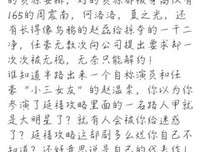 的贡标安排，对的贡标都被身高仅有
165的周震南，何洛洛，夏之光，还
有长得像乌鸦的赵磊给掠夺的一干二
净，任豪无数次向公司提出要求却一
次次被无视，无奈只能解约！
谁知道半路出来一个自称演员和任
豪"小三女友"的赵温柔，你以为你
参演了延禧攻略里面的一场路人甲就
是大明星了？就有人会被你给迷惑
了？延禧攻略这部剧多么烂你自己不
知道？还好意思说是自己的代表作！